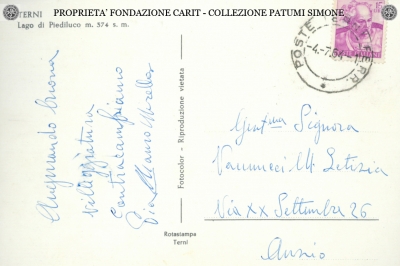 PROPRIETA' FONDAZIONE CARIT - COLLEZIONE PATUMI SIMONE
TERNI
Lago di Piediluco m. 374 s. m.
POSTE
-4.-7.64
15
Augurando buona
villeggiatura
contraccambiamo
Mauro Mirella
Fotocolor - Riproduzione vietata
Rotostampa
Terni
Gentma Signora
Vannucci M Letizia
Via XX Settembre 26
Anzio